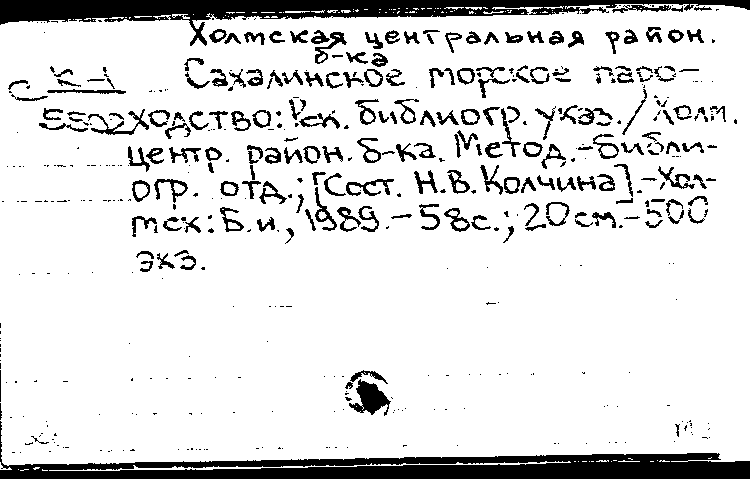 Холмская центральная район.
б-ка
К-1 Сахалинское морское паро-
С 5502 ходство: Рек. библиогр. указ. / Холм.
центр. район. б-ка. Метод.-библи-
огр. отд.; [Сост. Н.В. Колчина].-Хол-
мск: Б.и., 1989.-58с.; 20см.-500
экз.